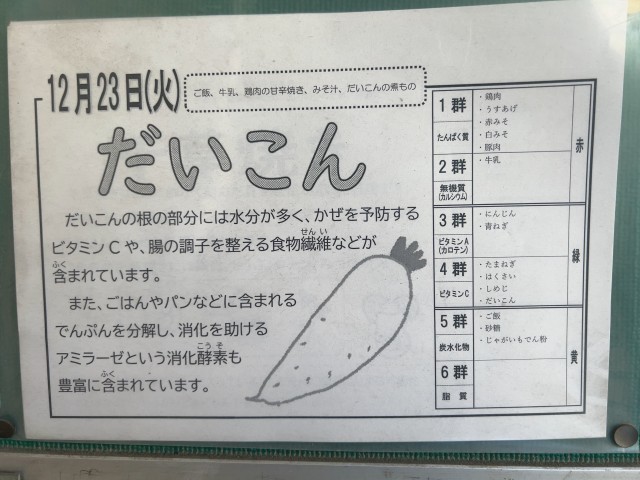 12月23日(火)
ご飯、牛乳、鶏肉の甘辛焼き、みそ汁、だいこんの煮もの
だいこん
だいこんの根の部分には水分が多く、かぜを予防する
ビタミンCや、腸の調子を整える食物繊維などが
せんい
含まれています。
ふく
また、ごはんやパンなどに含まれる
でんぷんを分解し、消化を助ける
アミラーゼという消化酵素も
こうそ
豊富に含まれています。
ふく
1群
たんぱく質
・鶏肉
・うすあげ
・赤みそ
・白みそ
・豚肉
2群
無機質
(カルシウム)
・牛乳
赤
3群
ビタミンA
(カロテン)
・にんじん
・青ねぎ
4群
ビタミンC
・たまねぎ
・はくさい
・しめじ
・だいこん
緑
5群
炭水化物
・ご飯
・砂糖
・じゃがいもでん粉
6群
脂質
黄